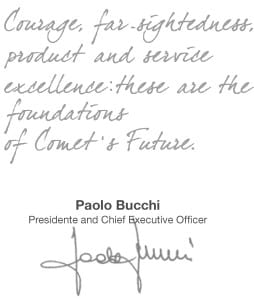 Courage, far-sightedness,
product and service
excellence: these are the
foundations
of Comet's Future.
Paolo Bucchi
Presidente and Chief Executive Officer